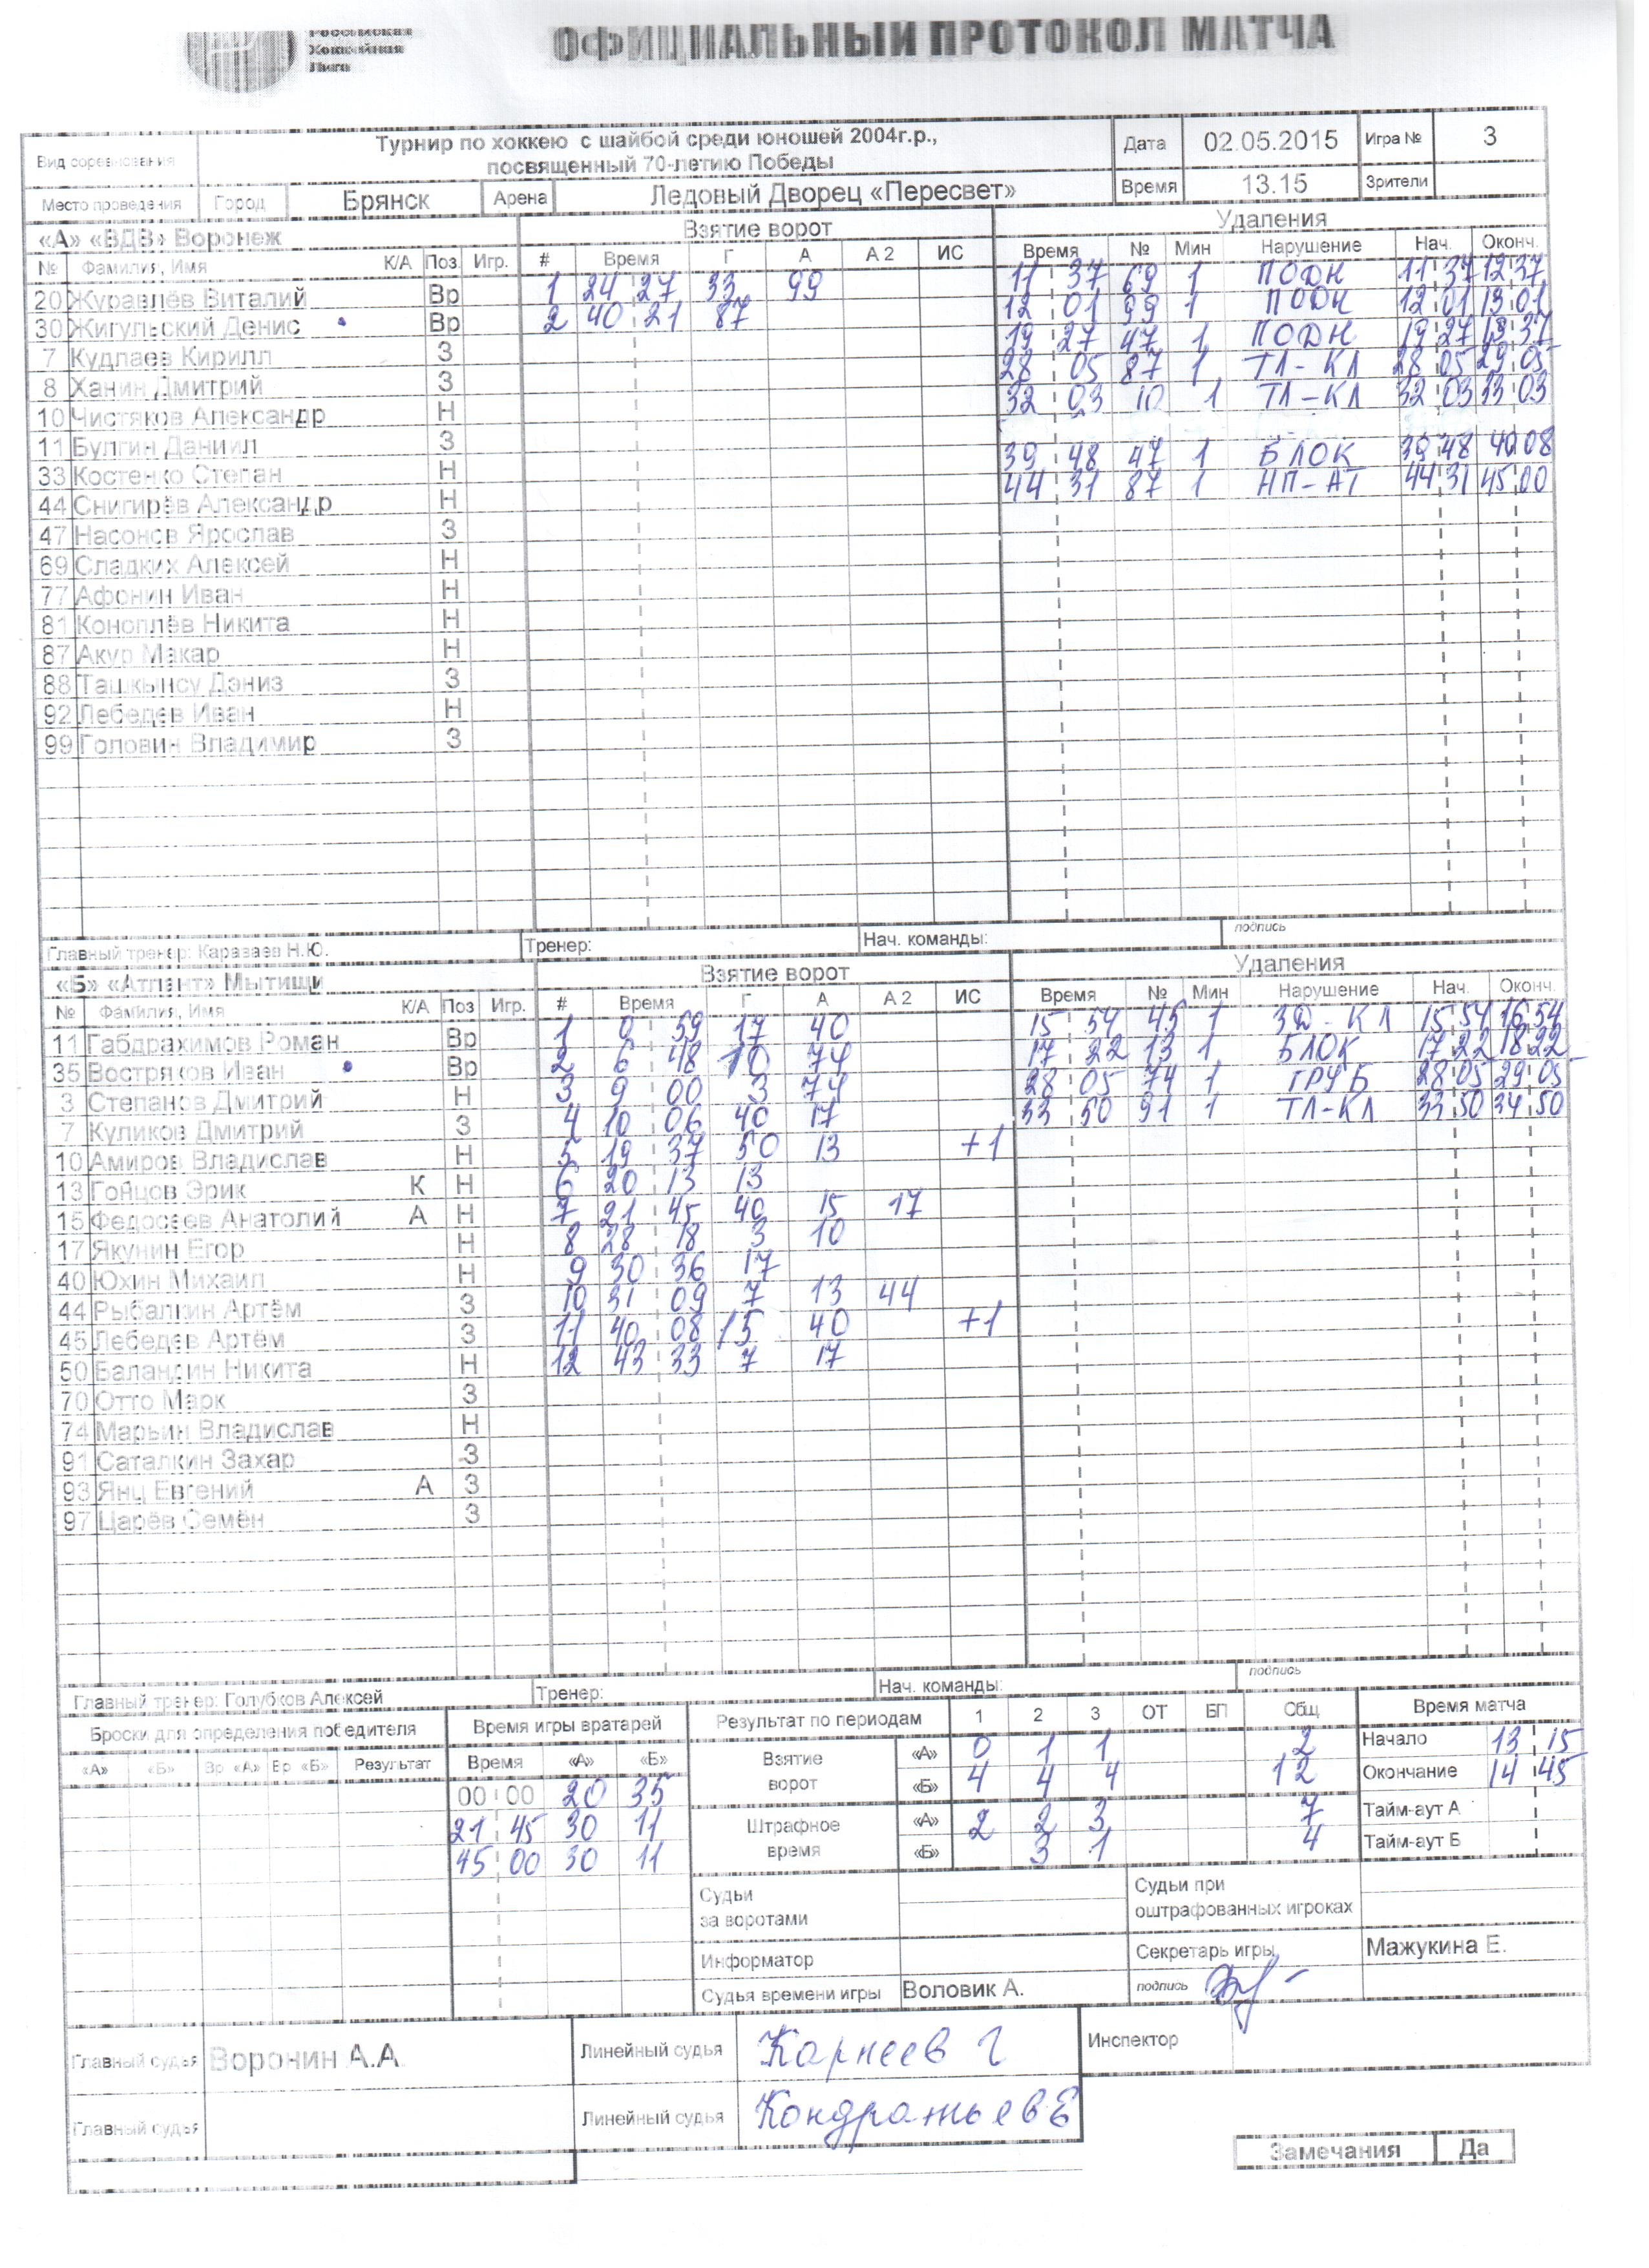 Российская
Хоккейная
Лига
ОФИЦИАЛЬНЫЙ ПРОТОКОЛ МАТЧА
Вид соревнования Турнир по хоккею с шайбой среди юношей 2004г.р., посвященный 70-летию Победы Дата 02.05.2015 Игра № 3
Место проведения Город Брянск Арена Ледовый Дворец «Пересвет» Время 13.15 Зрители
«А» «ВДВ» Воронеж Взятие ворот Удаления
№ Фамилия, Имя К/А Поз Игр. # Время Г А А 2 ИС Время № Мин Нарушение Нач. Оконч.
20 Журавлёв Виталий Вр 1 24 27 33 99 11 37 69 1 ПОДН 11 37 12 37
30 Жигульский Денис • Вр 2 40 21 87 12 01 99 1 ПОДН 12 01 13 01
7 Кудлаев Кирилл З 19 27 47 1 ПОДН 19 27 19 37
8 Ханин Дмитрий З 28 05 87 1 ТЛ-КЛ 28 05 29 05
10 Чистяков Александр Н 32 03 10 1 ТЛ-КЛ 32 03 33 03
11 Булгин Даниил З
33 Костенко Степан Н 39 48 47 1 БЛОК 39 48 40 08
44 Снигирёв Александр Н 44 31 87 1 НП-АТ 44 31 45 00
47 Насонов Ярослав З
69 Сладких Алексей Н
77 Афонин Иван Н
81 Коноплёв Никита Н
87 Акур Макар Н
88 Ташкынсу Дэниз З
92 Лебедев Иван Н
99 Головин Владимир З
Главный тренер: Каразаев Н.Ю. Тренер: Нач. команды: подпись
«Б» «Атлант» Мытищи Взятие ворот Удаления
№ Фамилия, Имя К/А Поз Игр. # Время Г А А 2 ИС Время № Мин Нарушение Нач. Оконч.
11 Габдрахимов Роман Вр 1 0 59 17 40 15 54 45 1 ЗД-КЛ 15 54 16 54
35 Востряков Иван • Вр 2 6 48 10 74 17 22 13 1 БЛОК 17 22 18 22
3 Степанов Дмитрий Н 3 9 00 3 74 28 05 74 1 ГРУБ 28 05 29 05
7 Куликов Дмитрий З 4 10 06 40 17 33 50 91 1 ТЛ-КЛ 33 50 34 50
10 Амиров Владислав Н 5 19 37 50 13 +1
13 Гойцов Эрик К Н 6 20 13 13
15 Федосеев Анатолий А Н 7 21 45 40 15 17
17 Якунин Егор Н 8 28 18 3 10
40 Юхин Михаил Н 9 30 36 17
44 Рыбалкин Артём З 10 31 09 7 13 44
45 Лебедев Артём З 11 40 08 15 40 +1
50 Баландин Никита Н 12 43 33 7 17
70 Отто Марк З
74 Марьин Владислав Н
91 Саталкин Захар З
93 Янц Евгений А З
97 Царёв Семён З
Главный тренер: Голубков Алексей Тренер: Нач. команды: подпись
Броски для определения победителя Время игры вратарей Результат по периодам 1 2 3 ОТ БП Общ Время матча
«А» «Б» Вр «А» Вр «Б» Результат Время «А» «Б» Взятие ворот «А» 0 1 1 2 Начало 13 15
00 00 20 35 «Б» 4 4 4 12 Окончание 14 45
21 45 30 11 Штрафное время «А» 2 2 3 7 Тайм-аут А
45 00 30 11 «Б» 3 1 4 Тайм-аут Б
Судьи за воротами Судьи при оштрафованных игроках
Информатор Секретарь игры Мажукина Е.
Судья времени игры Воловик А. подпись
Главный судья Воронин А.А. Линейный судья Корнеев Г Инспектор
Главный судья Линейный судья Кондратьев Е
Замечания Да